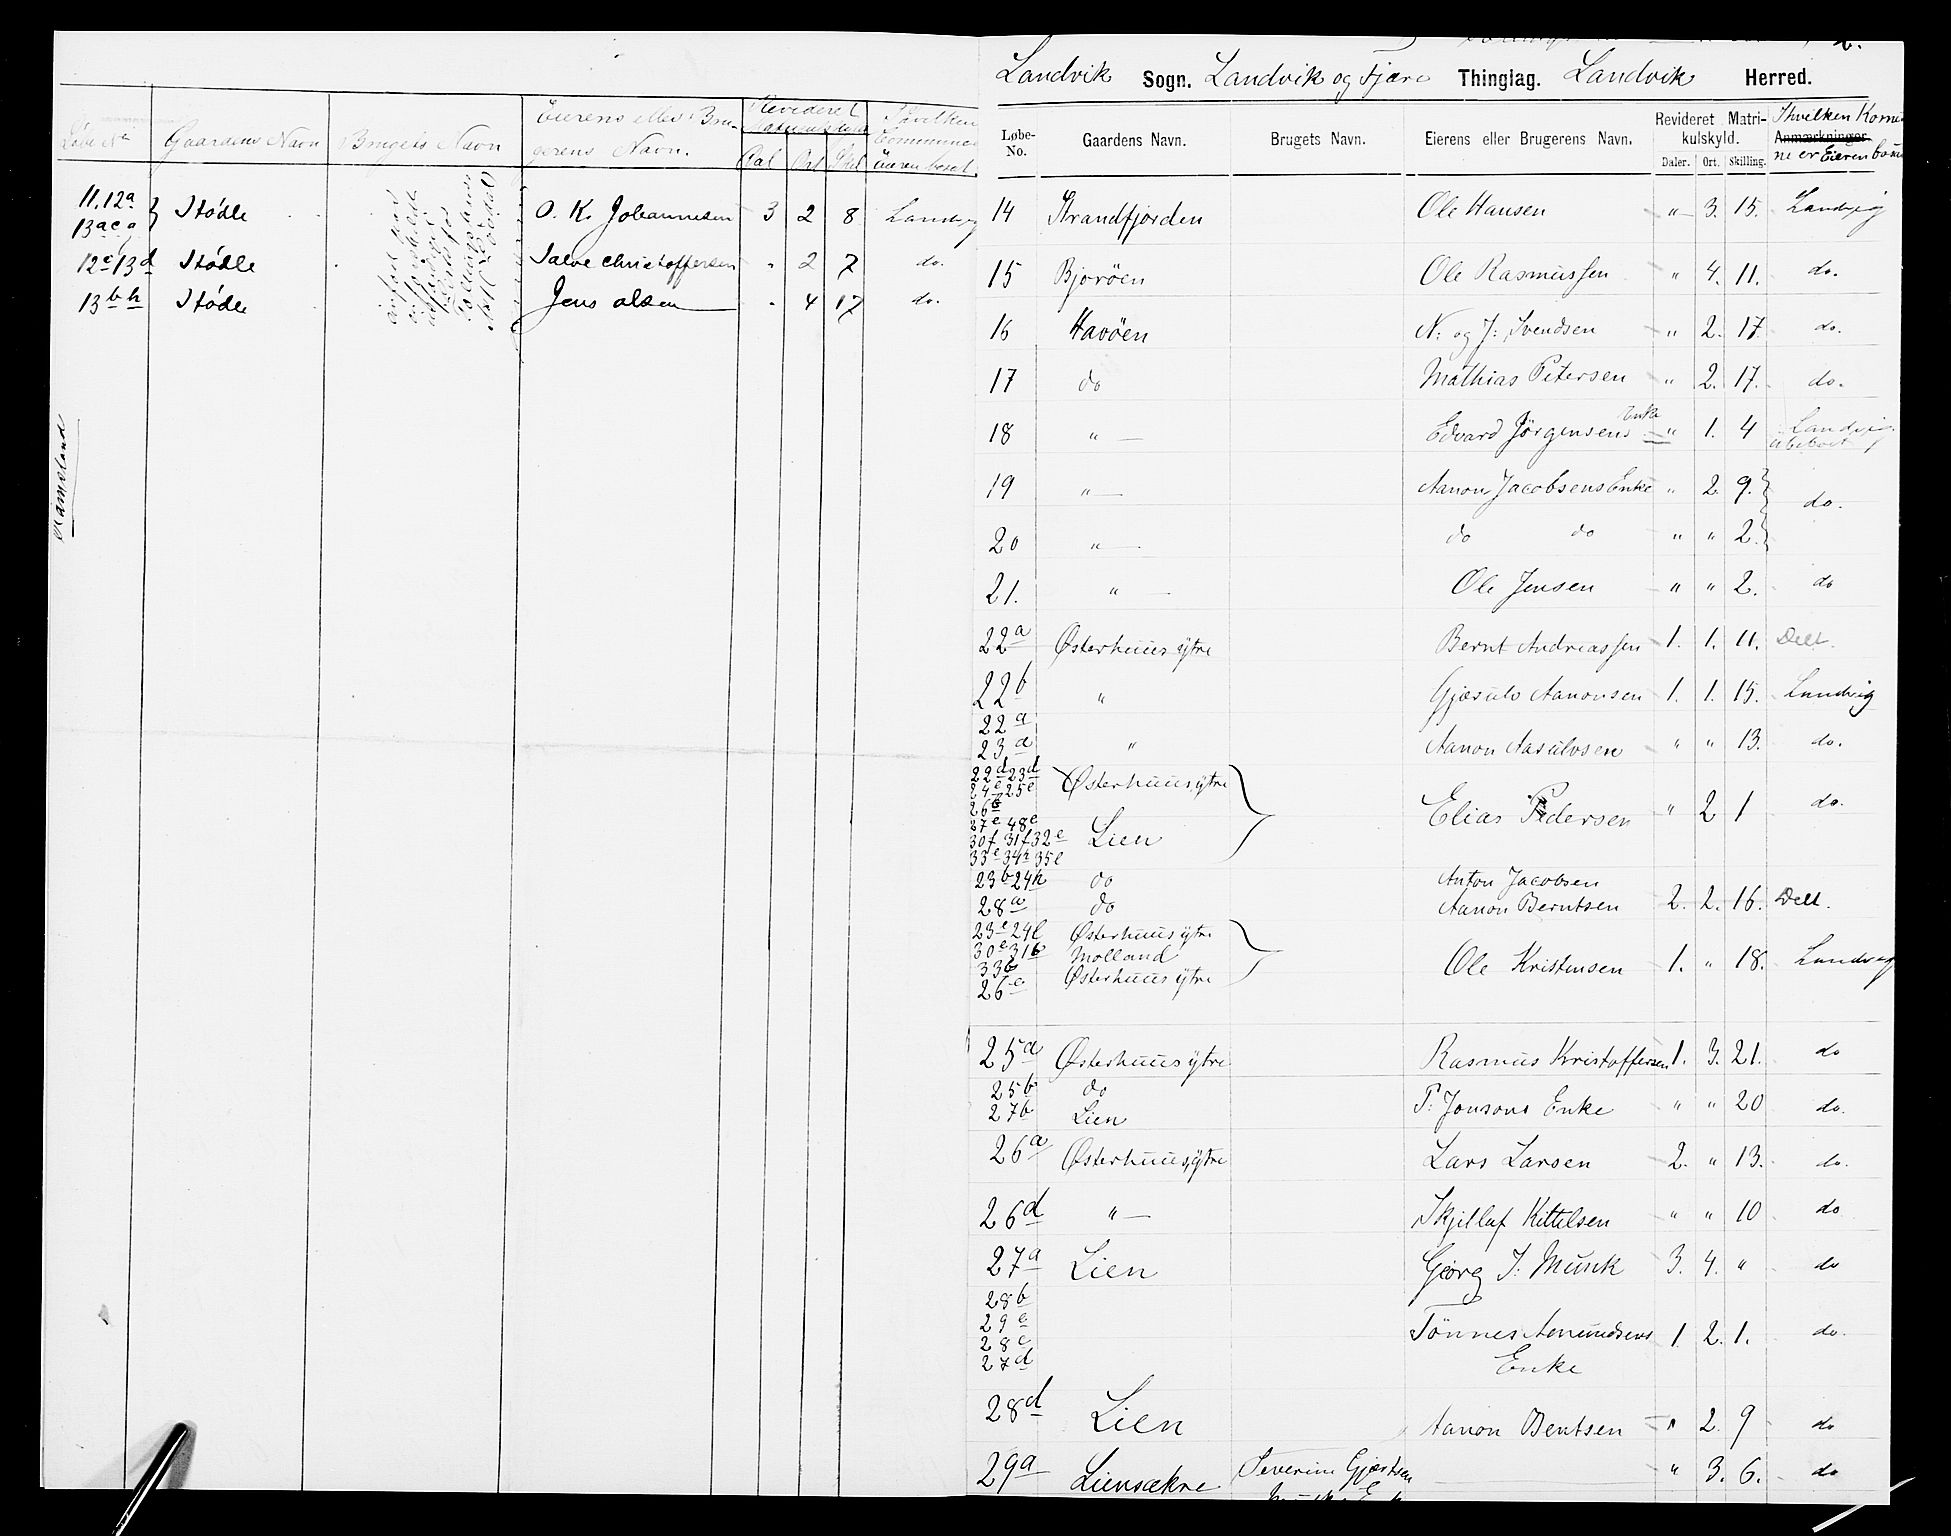 Løbe No Gaardens Navn Brugets Navn Eierens eller Bru-
gerens Navn. Revideret
Dal Ort Skil Ihvilken
Commune
Eieren boset.
11.12a
13ac } Stödle O. K. Johannesen 3 2 8 Landvig
12c 13d Stödle Salve Christoffersen " 2 7 do.
13bh Stödle Jens Olsen " 4 17 do.
Ramsland
2.
Landvik Sogn. Landvik og Fjære Thinglag. Landvik Herred.
Løbe-No. Gaardens Navn. Brugets Navn. Eierens eller Brugerens Navn. Revideret Matri-kulskyld. Daler. Ort. Skilling. Ihvilken Kommu-
Anmærkninger
ne er Eieren bosat
14 Strandfjorden Ole Hansen " 3. 15. Landvig
15 Bjoröen Ole Rasmussen " 4. 11. do.
16 Havöen N: og J: Svendsen " 2. 17. do.
17 do Mathias Petersen " 2. 17. do.
18 " Edvard Jörgensens Enke " 1. 4 Landvig
19 " Aanon Jacobsens Enke " 2. 9. } do.
20 " do do " " 2. }
21. " Ole Jensen " " 2. do
22a Østerhuus ytre Bernt Andreassen 1. 1. 11. Delt.
22b " Gjæsulv Aanonsen 1. 1. 15. Landvig
22a
23a " Aanon Aasulvsen " " 13. do.
22d 23d Østerhuus, ytre
24e 25e
26b
27e 48e Elias Pedersen " 2 1 do.
30f 31f 32e Lien
33e 34h 35e
23b 24h do Anton Jacobsen
28a do Aanon Berntsen 2. 2. 16. Delt.
23e 24l Østerhuus ytre
30e 31b Molland
33b Østerhuus ytre Ole Kristensen 1. " 18. Landvig
26c
25a Østerhuus ytre Rasmus Kristoffersen 1. 3. 21. do
25b do
27b Lien P: Jonsons Enke " " 20 do.
26a Østerhuus, ytre Lars Larsen 2. " 13. do.
26d " Skjellaf Kittelsen " " 10 do
27a Lien Georg J: Munk 3. 4. " do
28b
29c
28c Tönnes Amundsens 1 2. 1. do.
27d Enke
28d Lien Aanon Bentsen " 2. 9 do
29a Liensækre Severine Gjærtsen " 3. 6. do